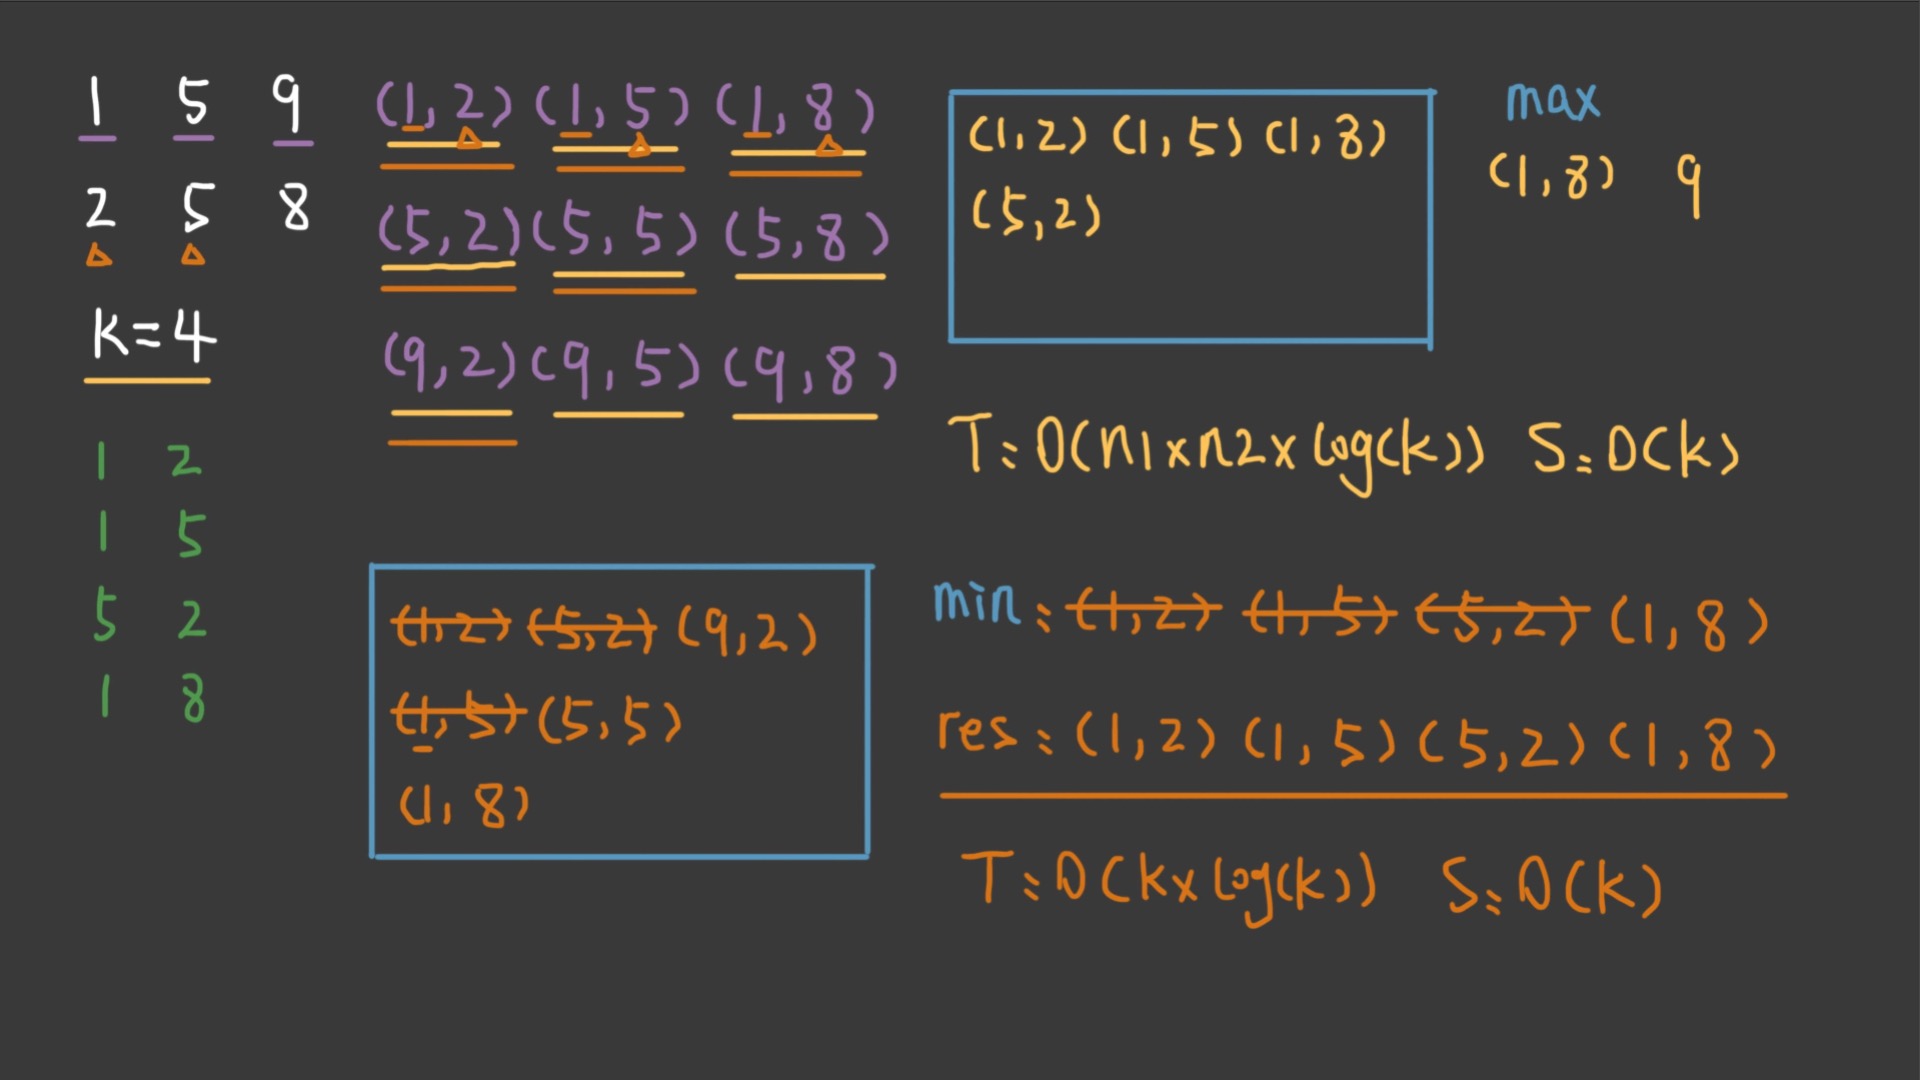 1 5 9
2 5 8
k=4
1 2
1 5
5 2
1 8
(1,2) (1,5) (1,8)
(5,2) (5,5) (5,8)
(9,2) (9,5) (9,8)
(1,2) (1,5) (1,8)
(5,2)
max
(1,8) 9
T: O(n1xn2xlog(k)) S: O(k)
(1,2) (5,2) (9,2)
(1,5) (5,5)
(1,8)
min: (1,2) (1,5) (5,2) (1,8)
res: (1,2) (1,5) (5,2) (1,8)
T: O(kxlog(k)) S: O(k)